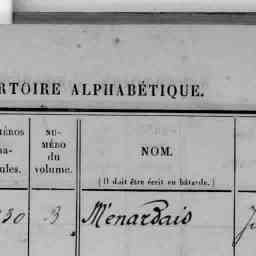 RTOIRE ALPHABÉTIQUE.
MÉROS
ma-
cules.
NU-
MÉRO
du
volume.
NOM.
(Il doit être écrit en bâtarde.)
230 3. Ménardais